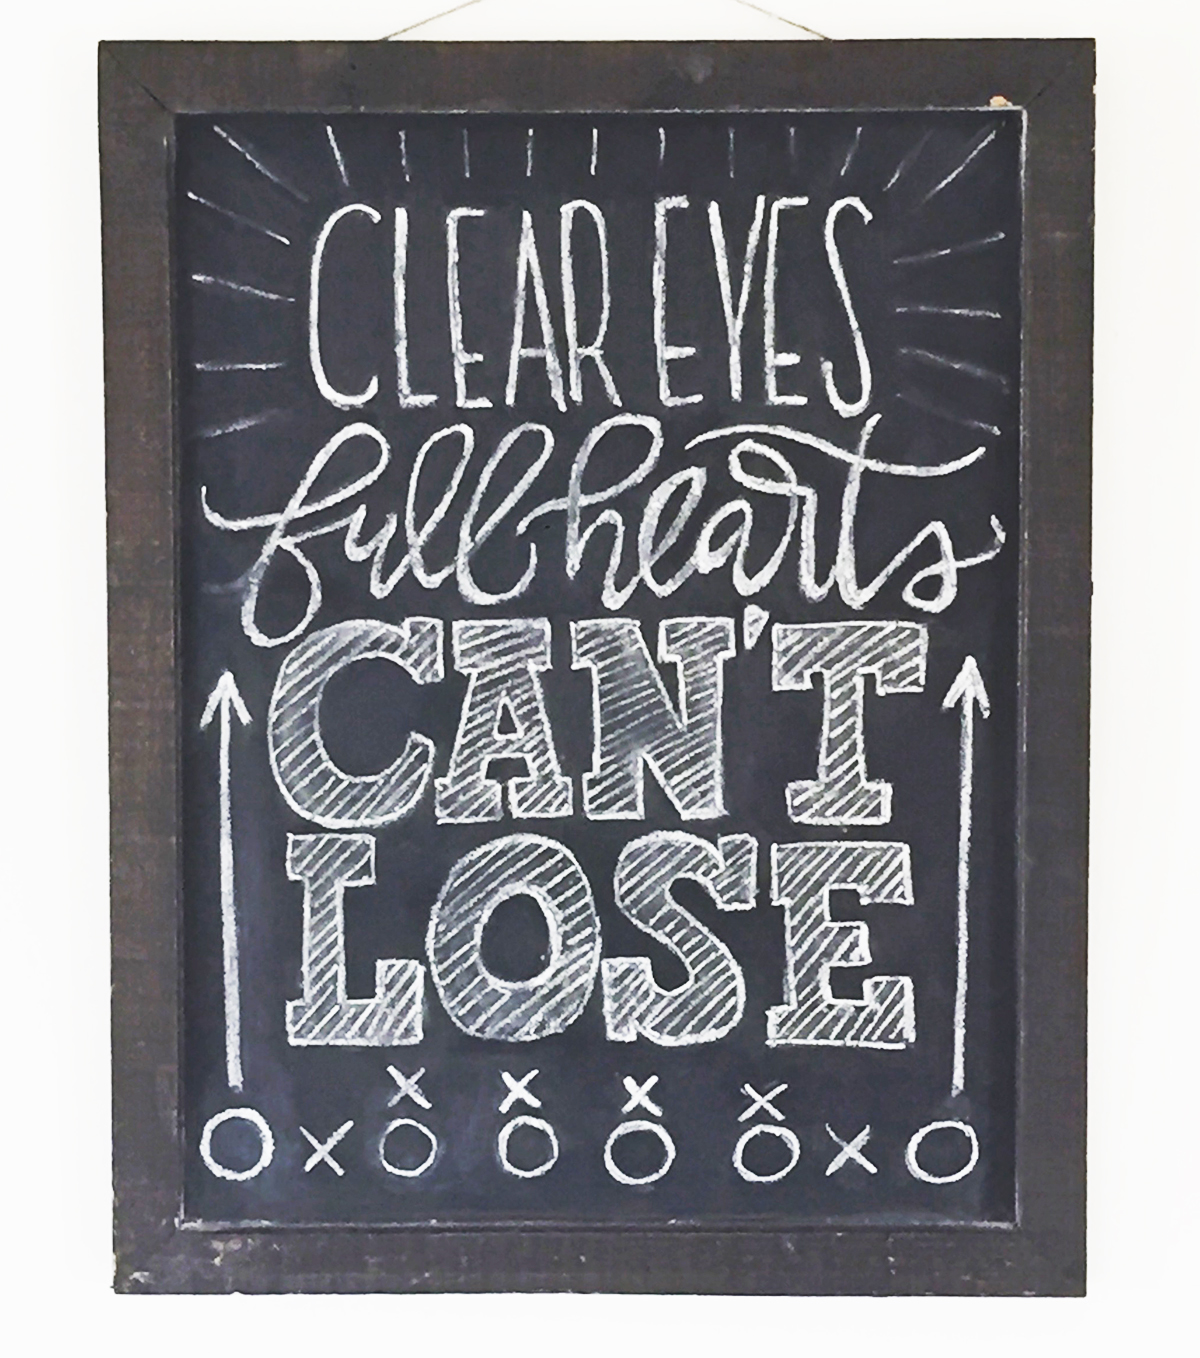 CLEAR EYES
full hearts
CAN'T
LOSE
X X X X
O X O O O O X O